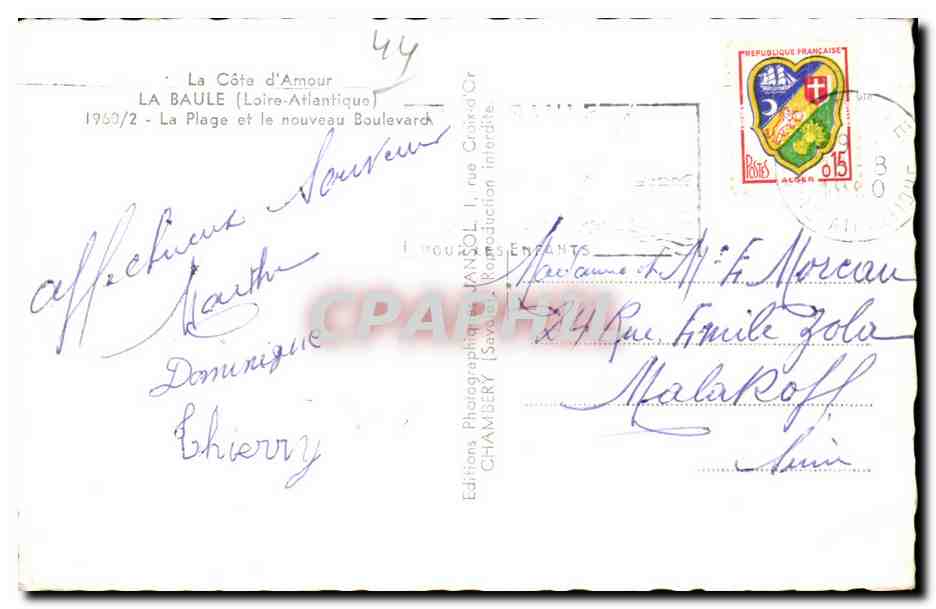 44
La Côte d'Amour
LA BAULE (Loire-Atlantique)
1960/2 - La Plage et le nouveau Boulevard
affectueux Souvenir
Marthe
Dominique
Thierry
Editions Photographiques JANSOL 1, rue Croix-d'Or
CHAMBÉRY (Savoie) Reproduction interdite
REPUBLIQUE FRANÇAISE
POSTES
0,15
ALGER
POUR LES ENFANTS
Madame et Mr E Moreau
24 Rue Emile Zola
Malakoff
Seine
CPARHI